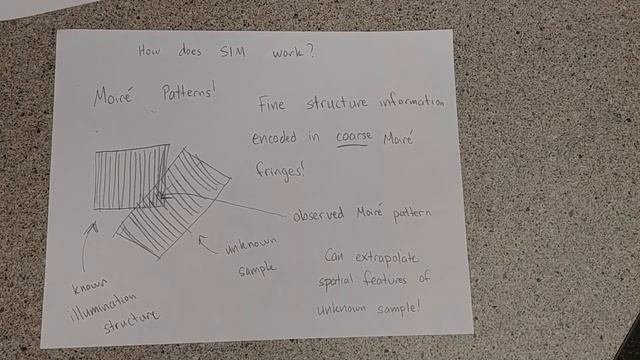 How does SIM work?
Moiré Patterns!
Fine structure information
encoded in coarse Moiré
fringes!
observed Moiré pattern
unknown
sample
known
illumination
structure
Can extrapolate
spatial features of
unknown sample!